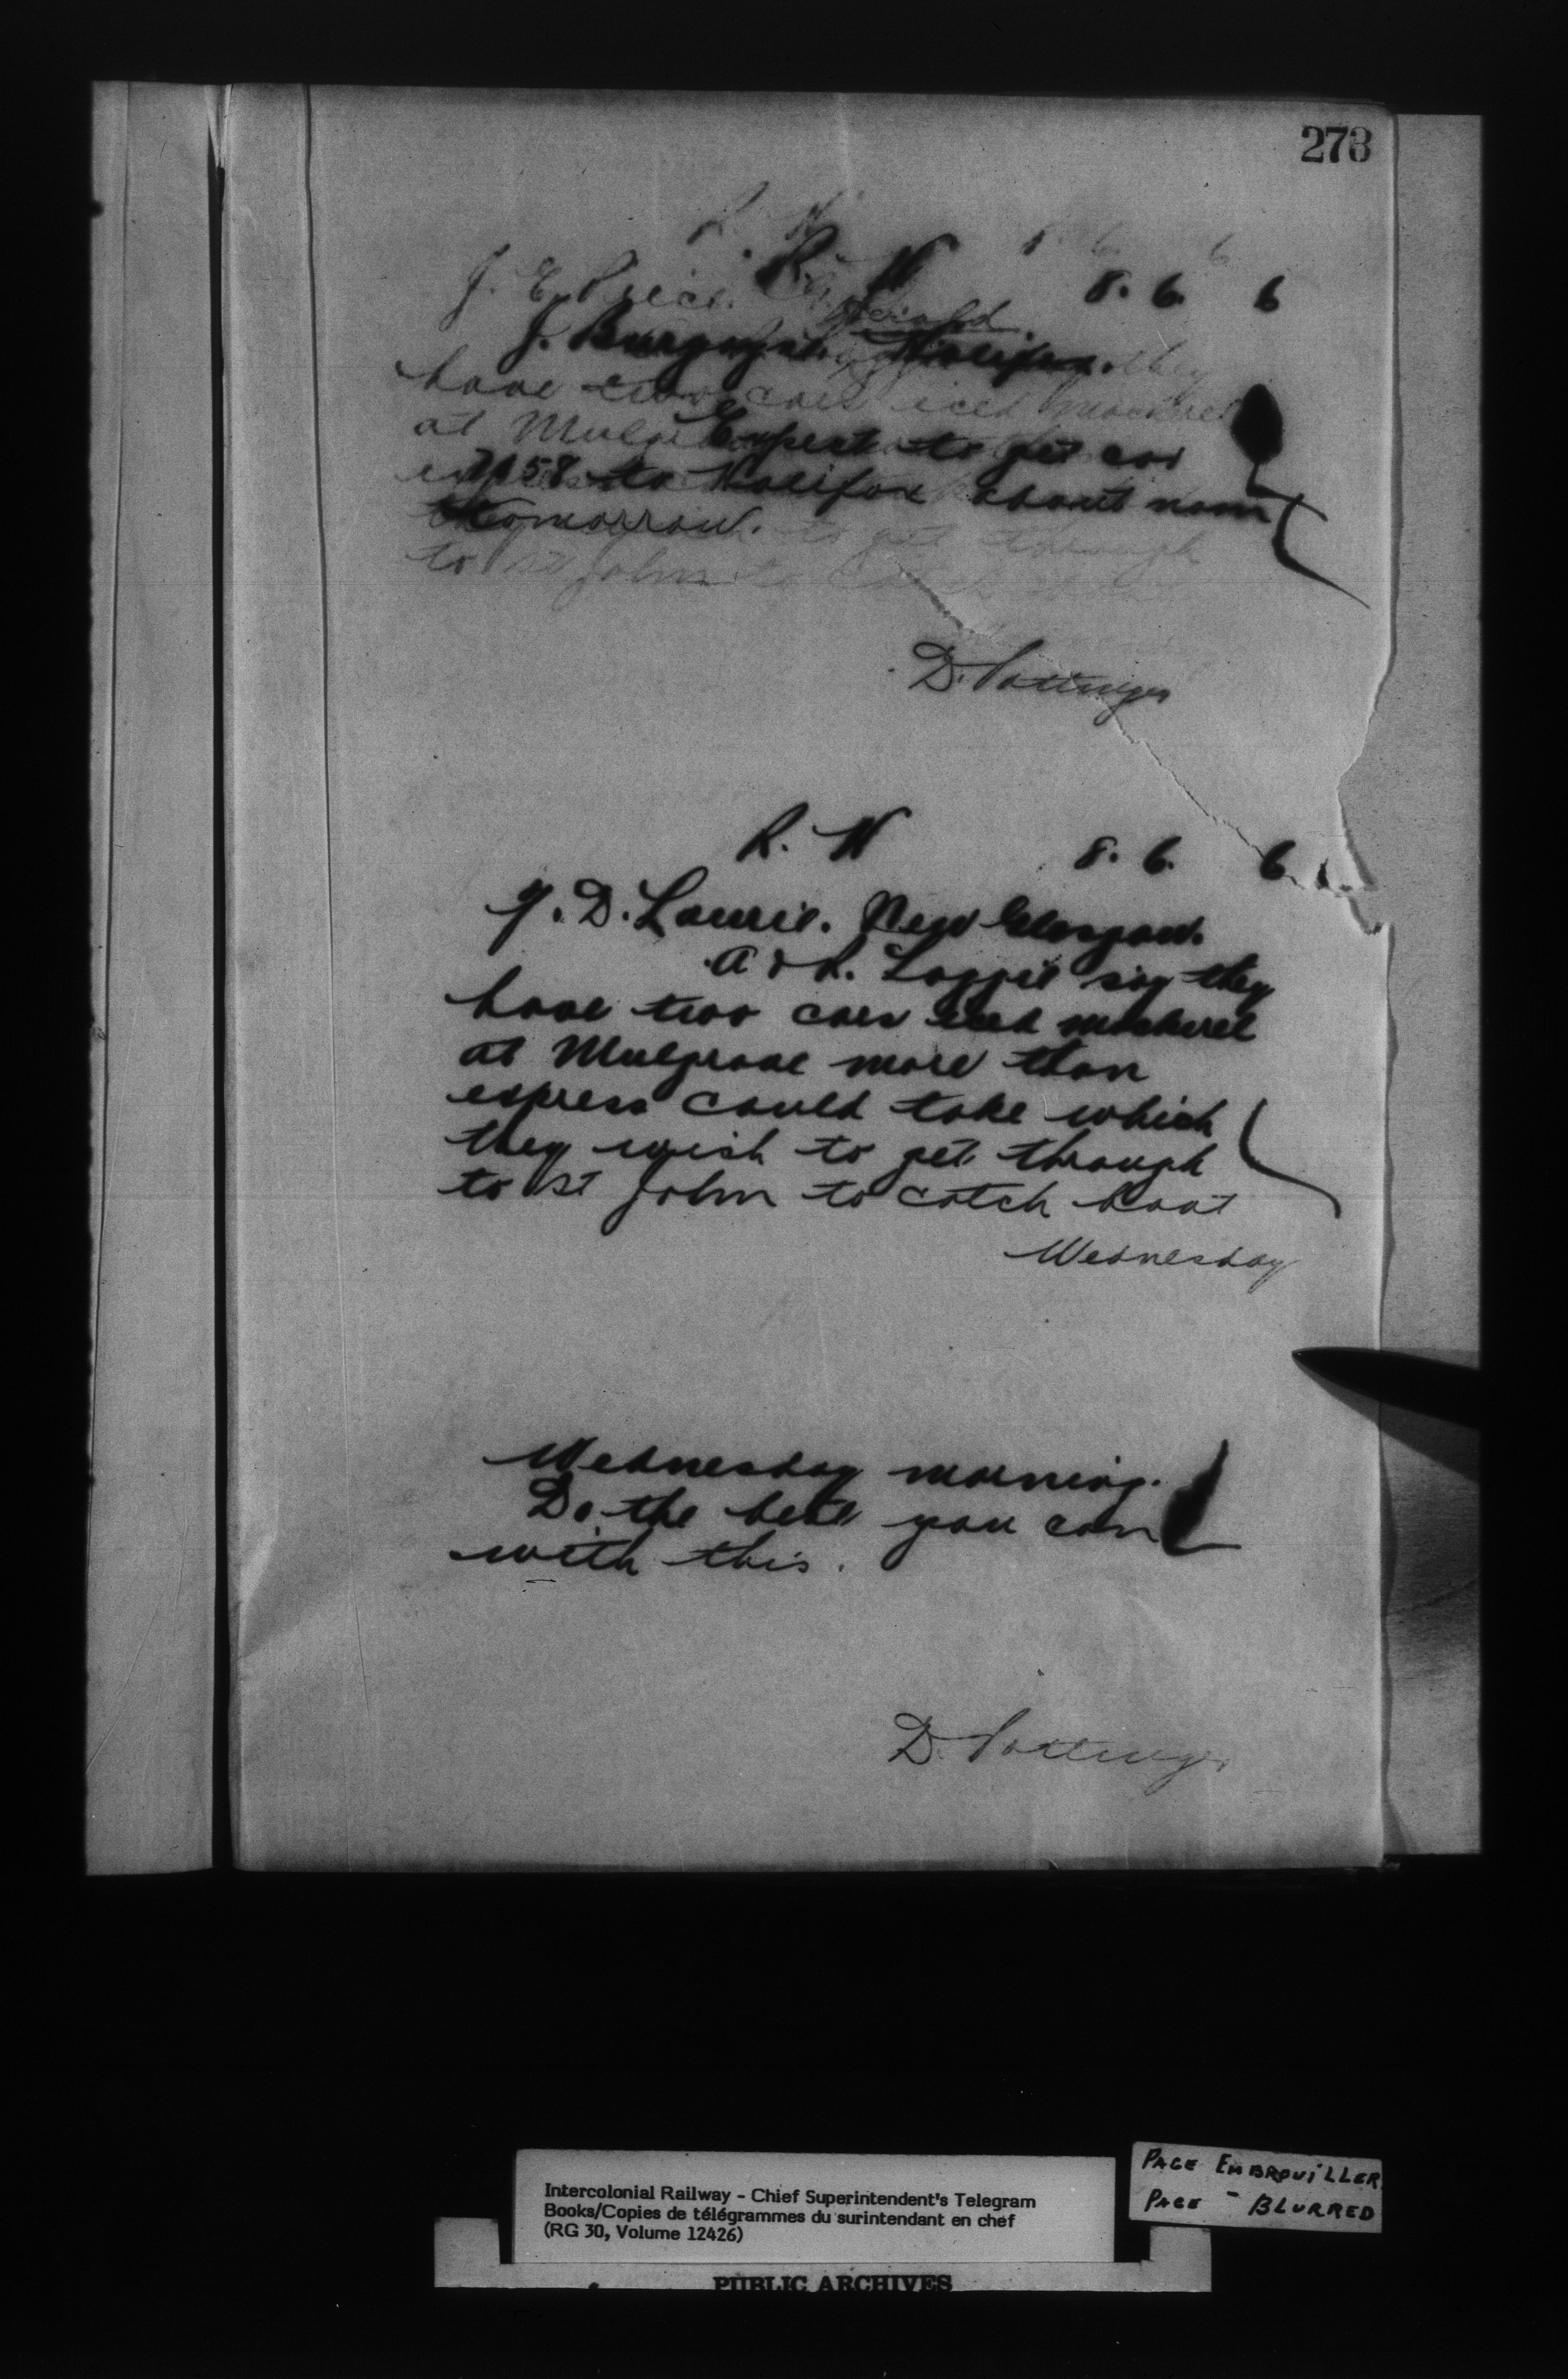 273
R. W 8. 6. 6
J. Burgoyne. Halifax.
Expect to get car
58 to Halifax about noon
tomorrow.
D. Pottinger
R. W 8. 6. 6
Y. D. Laurie. New Glasgow.
A & R. Loggie say they
have two cars iced mackerel
at Mulgrave more than
express could take which
they wish to get through
to St John to catch boat
Wednesday
Wednesday morning.
Do the best you can
with this.
D. Pottinger
Intercolonial Railway - Chief Superintendent's Telegram
Books/Copies de télégrammes du surintendant en chef
(RG 30, Volume 12426)
PAGE EMBROUILLER
PAGE - BLURRED
PUBLIC ARCHIVES